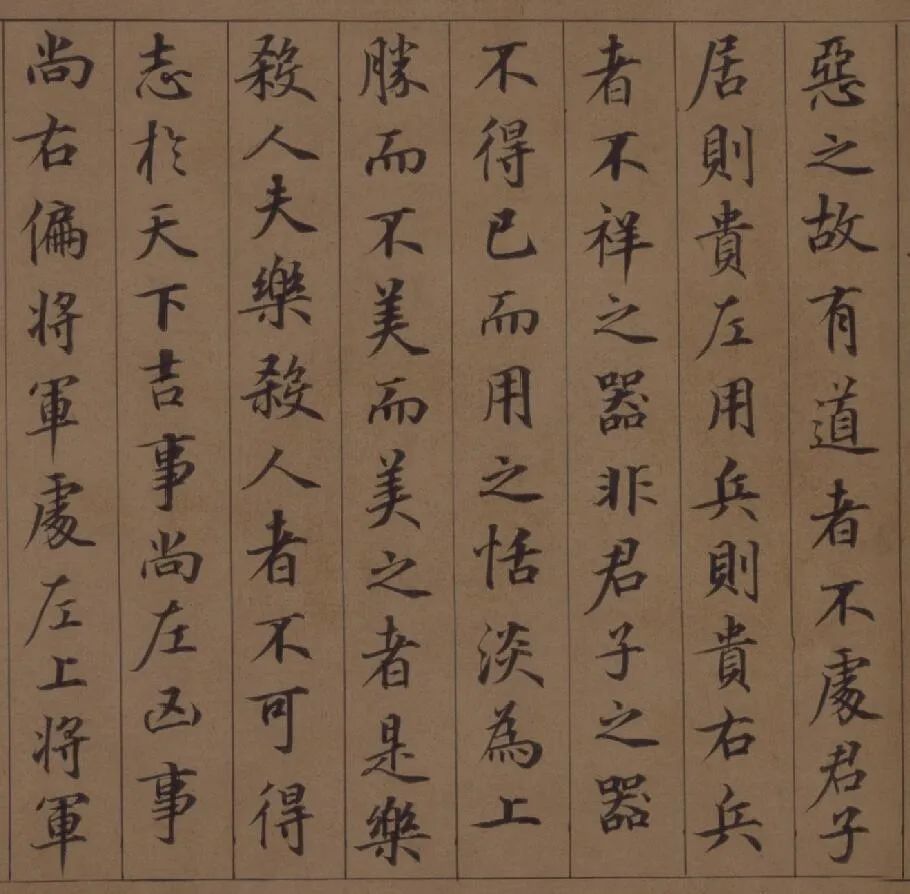 惡之故有道者不處君子
居則貴左用兵則貴右兵
者不祥之器非君子之器
不得已而用之恬淡為上
勝而不美而美之者是樂
殺人夫樂殺人者不可得
志於天下吉事尚左凶事
尚右偏將軍處左上將軍